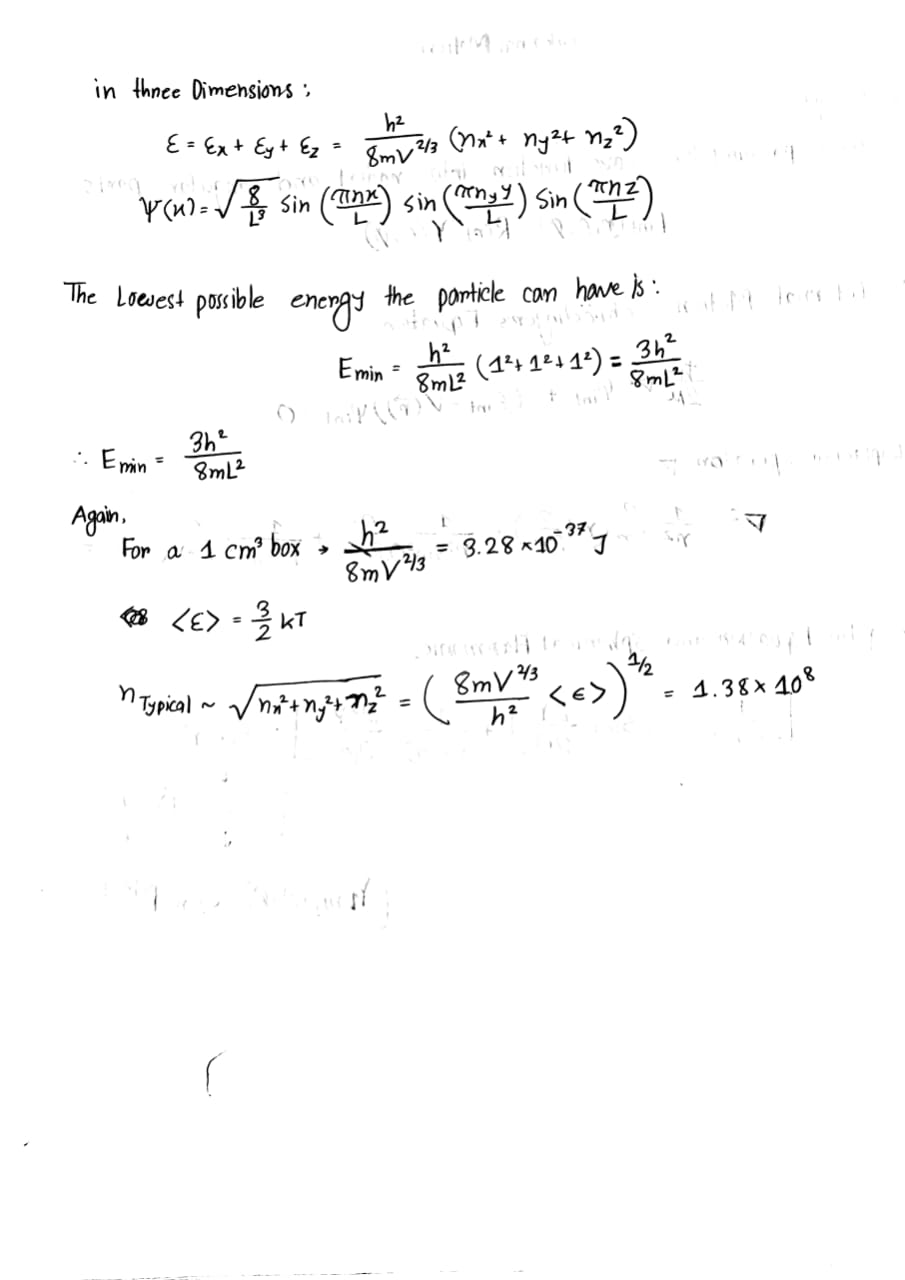 in three Dimensions ;
ε = εx + εy + εz = h²/8mV^2/3 (nx² + ny² + nz²)
Ψ(x) = √8/L³ sin (πnx/L) sin (πnyy/L) Sin (πnz/L)
The Lowest possible energy the particle can have is :
Emin = h²/8mL² (1² + 1² + 1²) = 3h²/8mL²
∴ Emin = 3h²/8mL²
Again,
For a 1 cm³ box → h²/8mV^2/3 = 3.28 × 10^-37 J
<ε> = 3/2 kT
n Typical ~ √nx² + ny² + nz² = (8mV^2/3/h² <ε>)^1/2 = 1.38 × 10⁸